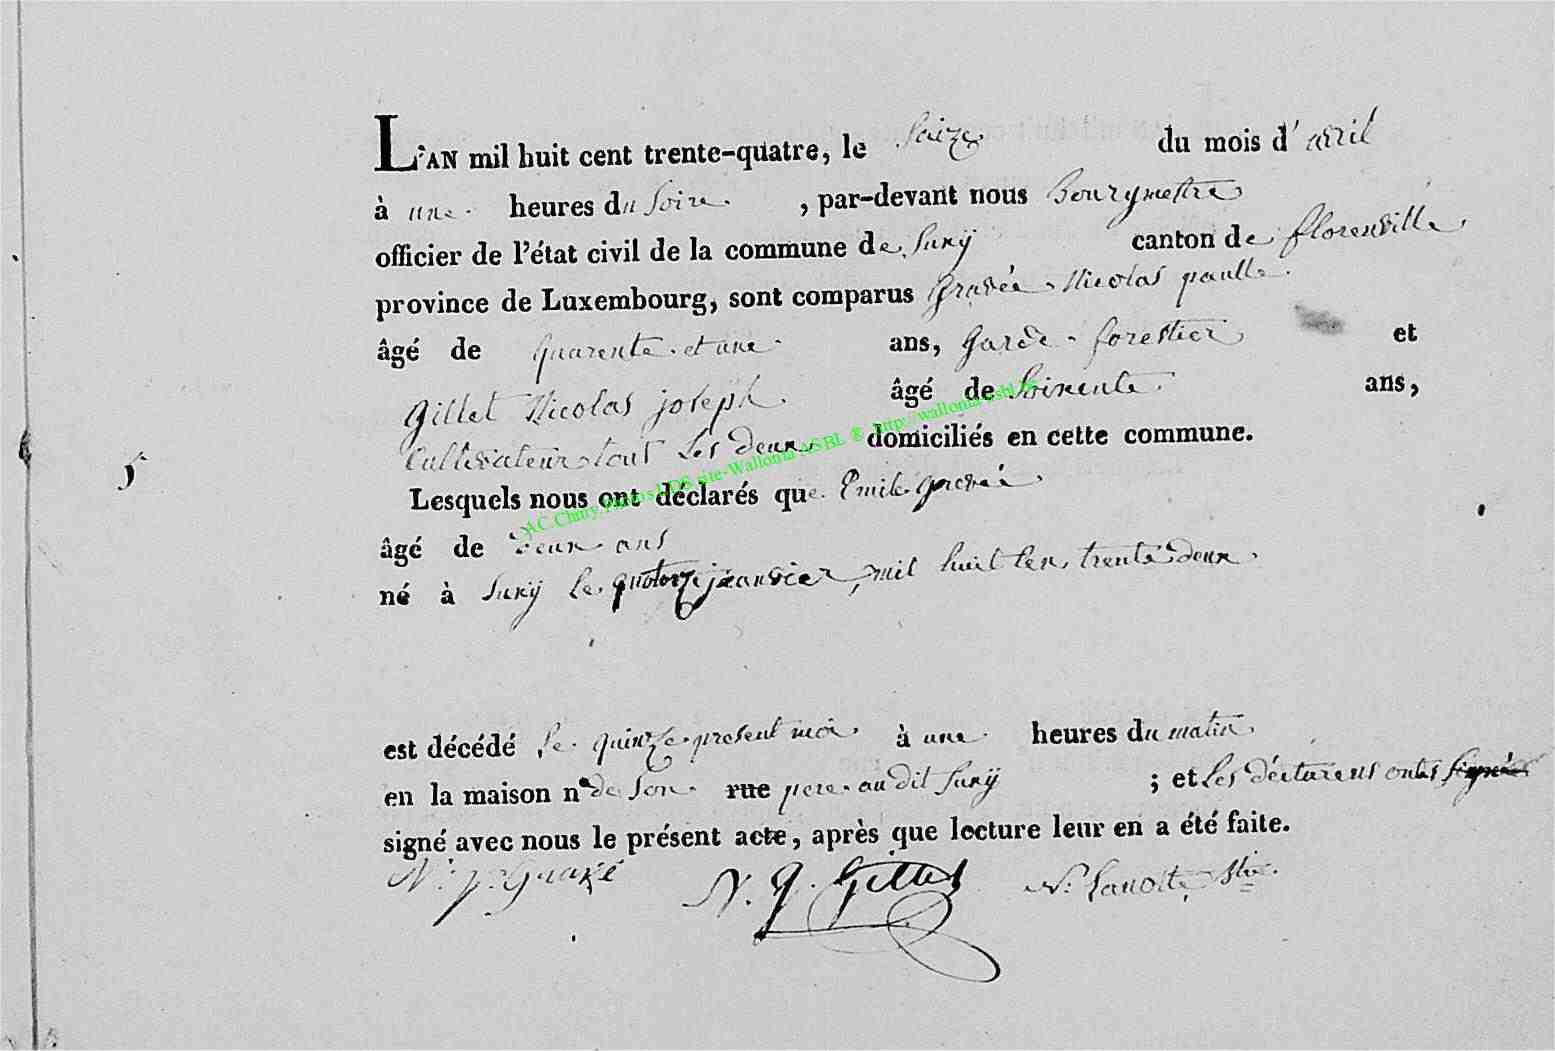 L'AN mil huit cent trente-quatre, le Saize du mois d'avril
à une heures du Soire, par-devant nous Bourymestre
officier de l'état civil de la commune de Suxÿ canton de florenville
province de Luxembourg, sont comparus Gravée Nicolas paulle
âgé de quarente et une ans, Garde forestier et
Gillet Nicolas joseph âgé de Soixente ans,
Cultivateur tous les deux domiciliés en cette commune.
5
Lesquels nous ont déclarés que Emile Gravée
AC.Chiny.Photos LDS site-Wallonia ASBL ® http://wallonia-asbl.be
âgé de deux ans
né à Suxÿ le quatorze jeanvier mil huit cen trente deux
est décédé le quinze present moi à une heures du matin
en la maison n° de Son rue pere au dit Suxÿ ; et les déclarens onts signés
signé avec nous le présent acte, après que lecture leur en a été faite.
N: p: Gravé N. J. Gillet N: Lanotte